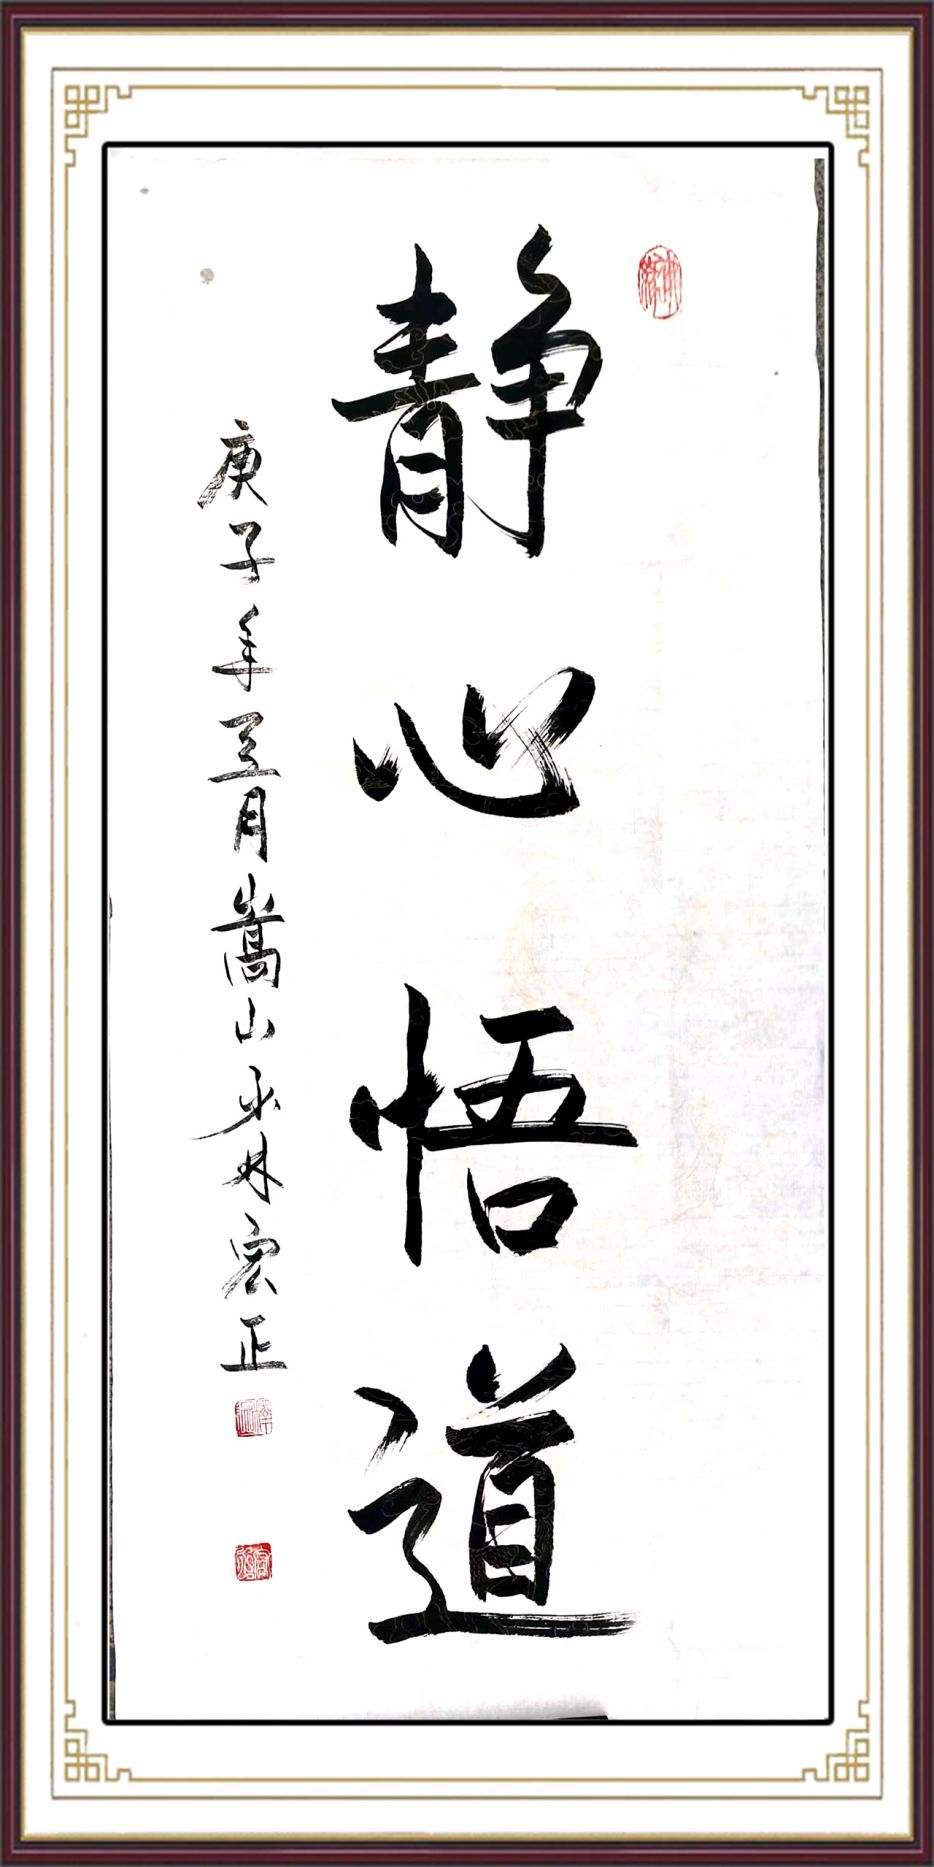 静心悟道
庚子年月嵩山少林宏正